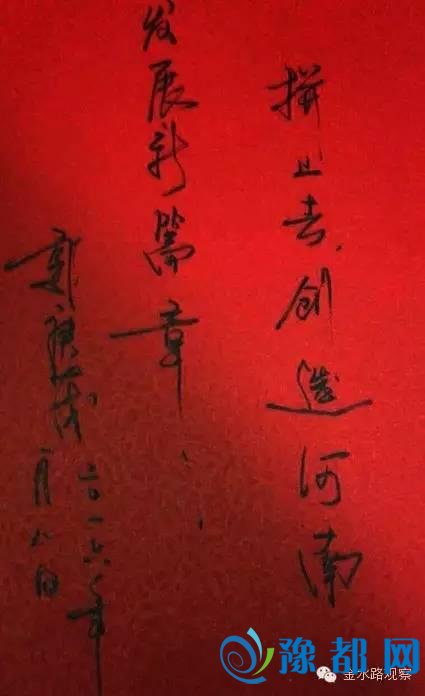 拼上去,创造河南
发展新篇章。
郭庚茂
二〇一六年
月八日
豫都网
金水路观察